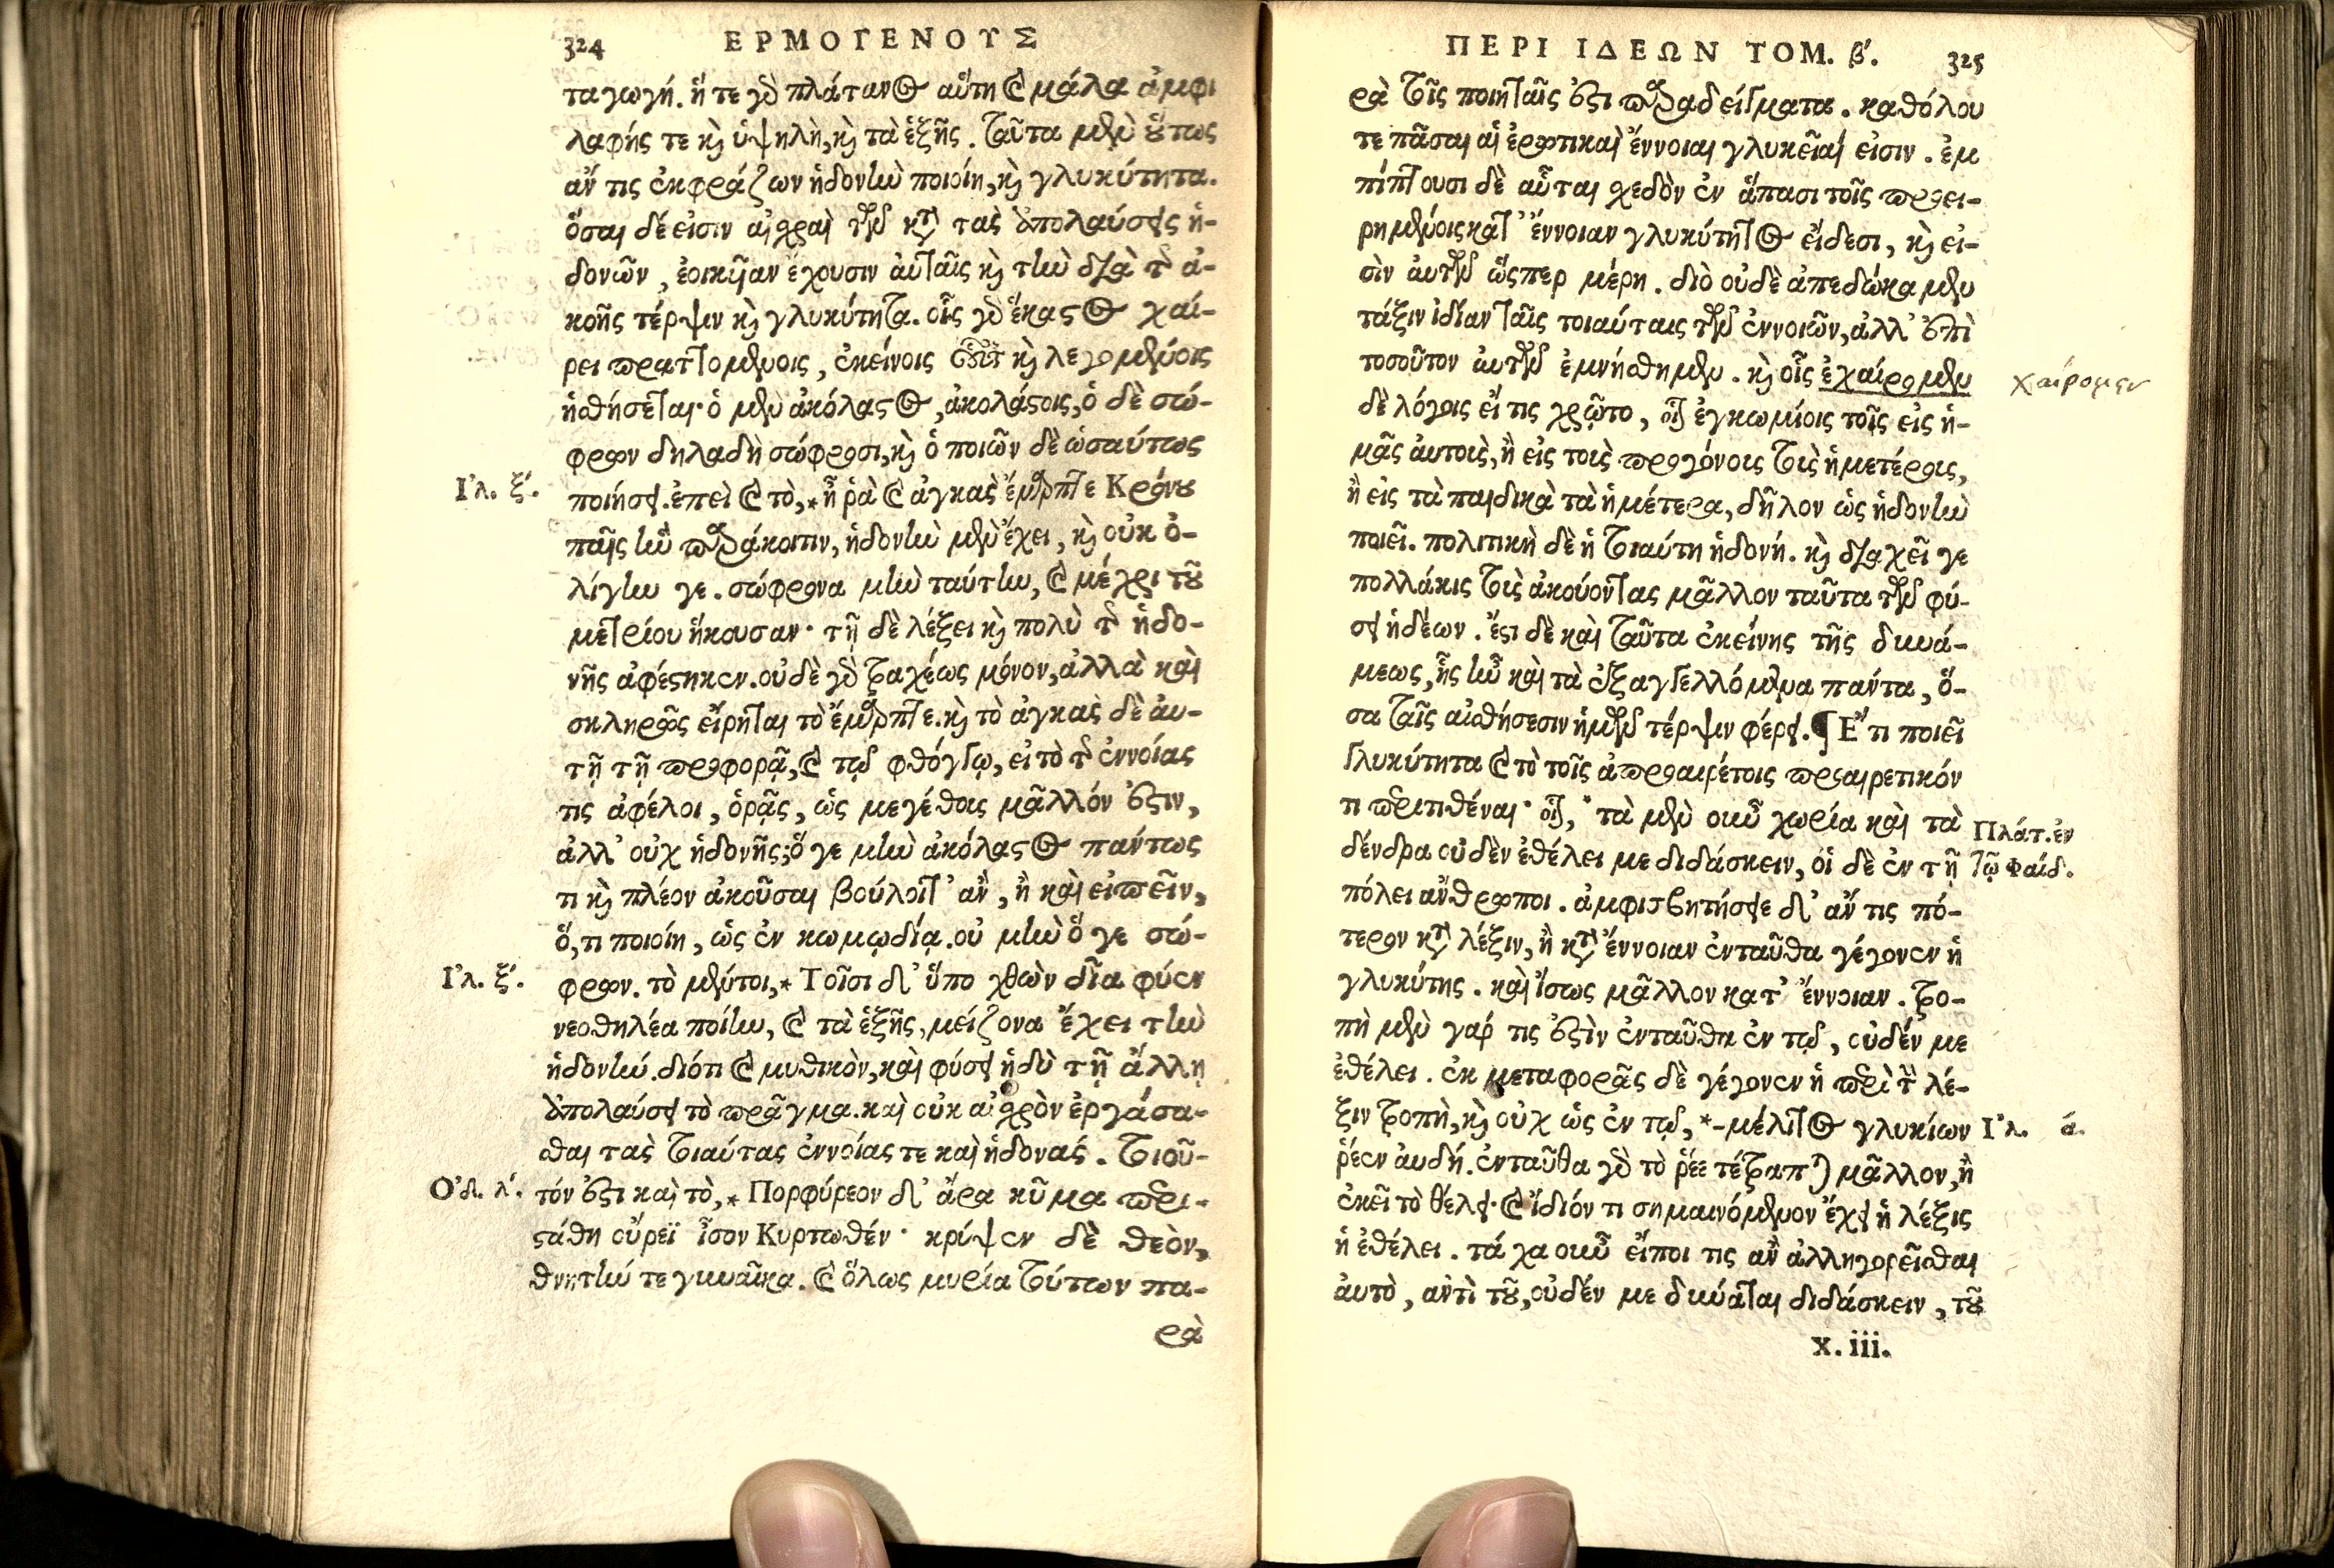 324 ΕΡΜΟΓΕΝΟΥΣ
ταγωγή. ἥ τε γὸ πλάτανος αὕτη καὶ μάλα ἀμφι
λαφής τε καὶ ὑψηλὴ, καὶ τὰ ἑξῆς. ταῦτα μὲν οὕτως
ἄν τις ἐκφράζων ἡδονὴν ποιοίη, καὶ γλυκύτητα.
ὅσαι δέ εἰσιν αἰσχραὶ τῶν κατὰ τὰς ἀπολαύσεις ἡ-
δονῶν, ἐοικυῖαν ἔχουσιν αὐταῖς καὶ τὴν διὰ τῆς ἀ-
κοῆς τέρψιν καὶ γλυκύτητα. οἷς γὸ ἕκαστος χαί-
ρει πραττομένοις, ἐκείνοις καὶ λεγομένοις
ἡσθήσεται· ὁ μὲν ἀκόλαστος, ἀκολάστοις, ὁ δὲ σώ-
φρων δηλαδὴ σώφροσι, καὶ ὁ ποιῶν δὲ ὡσαύτως
Ἰλ. ξ΄. ποιήσει. ἐπεὶ καὶ τὸ, *ἦ ῥὰ καὶ ἀγκὰς ἔμαρπτε Κρόνου
παῖς ἣν παράκοιτιν, ἡδονὴν μὲν ἔχει, καὶ οὐκ ὀ-
λίγην γε. σώφρονα μὴν ταύτην, καὶ μέχρι τοῦ
μετρίου ἥκουσαν· τῇ δὲ λέξει καὶ πολὺ τῆς ἡδο-
νῆς ἀφέστηκεν. οὐδὲ γὸ τραχέως μόνον, ἀλλὰ καὶ
σκληρῶς εἴρηται τὸ ἔμαρπτε. καὶ τὸ ἀγκὰς δὲ αὐ-
τῇ τῇ προφορᾷ, καὶ τῷ φθόγγῳ, εἰ τὸ τῆς ἐννοίας
τις ἀφέλοι, ὁρᾷς, ὡς μεγέθους μᾶλλόν ἐστιν,
ἀλλ' οὐχ ἡδονῆς; ὅ γε μὴν ἀκόλαστος πάντως
τι καὶ πλέον ἀκοῦσαι βούλοιτ' ἂν, ἢ καὶ εἰπεῖν,
ὅ,τι ποιοίη, ὡς ἐν κωμῳδίᾳ. οὐ μὴν ὅ γε σώ-
Ἰλ. ξ΄. φρων. τὸ μέντοι, *Τοῖσι δ' ὕπο χθὼν δῖα φύεν
νεοθηλέα ποίην, καὶ τὰ ἑξῆς, μείζονα ἔχει τὴν
ἡδονήν. διότι καὶ μυθικὸν, καὶ φύσει ἡδὺ τῇ ἄλλῃ
ἀπολαύσει τὸ πρᾶγμα. καὶ οὐκ αἰσχρὸν ἐργάσα-
σθαι τὰς τοιαύτας ἐννοίας τε καὶ ἡδονάς. τοιοῦ-
Ὀδ. λ΄. τόν ἐστι καὶ τὸ, *Πορφύρεον δ' ἄρα κῦμα περι-
στάθη οὔρεϊ ἶσον Κυρτωθέν· κρύψεν δὲ θεὸν,
θνητήν τε γυναῖκα. καὶ ὅλως μυρία τούτων πα-
ρὰ
ΠΕΡΙ ΙΔΕΩΝ ΤΟΜ. β΄. 325
ρὰ τοῖς ποιηταῖς ἐστι παραδείγματα. καθόλου
τε πᾶσαι αἱ ἐρωτικαὶ ἔννοιαι γλυκεῖαί εἰσιν. ἐμ
πίπτουσι δὲ αὗται σχεδὸν ἐν ἅπασι τοῖς προει-
ρημένοις κατ' ἔννοιαν γλυκύτητος εἴδεσι, καὶ εἰ-
σὶν αὐτῶν ὥσπερ μέρη. διὸ οὐδὲ ἀπεδώκαμεν
τάξιν ἰδίαν ταῖς τοιαύταις τῶν ἐννοιῶν, ἀλλ' ἐπὶ
τοσοῦτον αὐτῶν ἐμνήσθημεν. καὶ οἷς ἐχαίρομεν
χαίρομεν
δὲ λόγοις εἴ τις χρῷτο, οἷον ἐγκωμίοις τοῖς εἰς ἡ-
μᾶς αὐτοὺς, ἢ εἰς τοὺς προγόνους τοὺς ἡμετέρους,
ἢ εἰς τὰ παιδικὰ τὰ ἡμέτερα, δῆλον ὡς ἡδονὴν
ποιεῖ. πολιτικὴ δὲ ἡ τοιαύτη ἡδονή. καὶ διαχεῖ γε
πολλάκις τοὺς ἀκούοντας μᾶλλον ταῦτα τῶν φύ-
σει ἡδέων. ἔστι δὲ καὶ ταῦτα ἐκείνης τῆς δυνά-
μεως, ἧς ἦν καὶ τὰ ἐξαγγελλόμενα πάντα, ὅ-
σα ταῖς αἰσθήσεσιν ἡμῶν τέρψιν φέρει. ¶ Ἔτι ποιεῖ
γλυκύτητα καὶ τὸ τοῖς ἀπροαιρέτοις προαιρετικόν
τι περιτιθέναι· οἷον, *τὰ μὲν οὖν χωρία καὶ τὰ Πλάτ. ἐν
δένδρα οὐδὲν ἐθέλει με διδάσκειν, οἱ δὲ ἐν τῇ τῷ Φαίδ.
πόλει ἄνθρωποι. ἀμφισβητήσειε δ' ἄν τις πό-
τερον κατὰ λέξιν, ἢ κατὰ ἔννοιαν ἐνταῦθα γέγονεν ἡ
γλυκύτης. καὶ ἴσως μᾶλλον κατ' ἔννοιαν. τρο-
πὴ μὲν γάρ τις ἐστὶν ἐνταῦθα ἐν τῷ, οὐδέν με
ἐθέλει. ἐκ μεταφορᾶς δὲ γέγονεν ἡ περὶ τὴν λέ-
ξιν τροπὴ, καὶ οὐχ ὡς ἐν τῷ, *-μέλιτος γλυκίων Ἰλ. ά.
ῥέεν αὐδή. ἐνταῦθα γὸ τὸ ῥέε τέτραπται μᾶλλον, ἢ
ἐκεῖ τὸ θέλει. καὶ ἴδιόν τι σημαινόμενον ἔχει ἡ λέξις
ἡ ἐθέλει. τάχα οὖν εἴποι τις ἂν ἀλληγορεῖσθαι
αὐτὸ, ἀντὶ τοῦ, οὐδέν με δύναται διδάσκειν, τοῦ
x. iii.